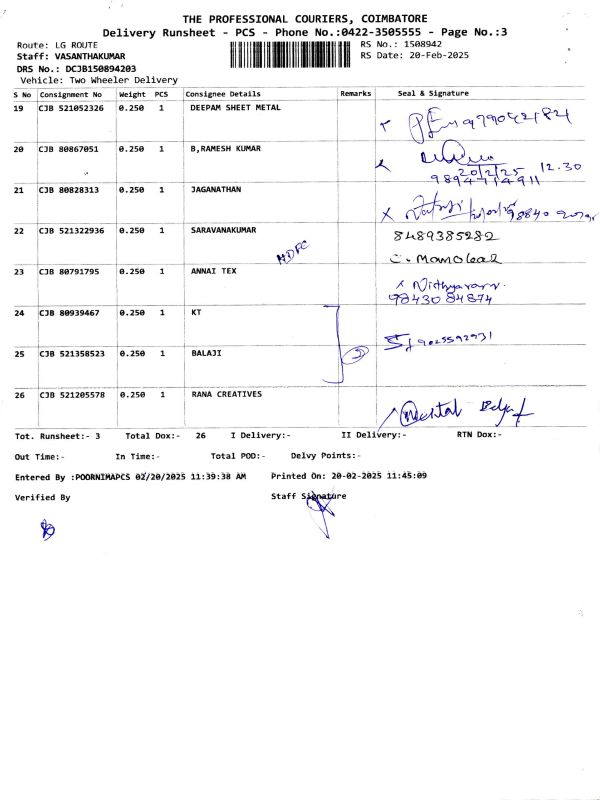 THE PROFESSIONAL COURIERS, COIMBATORE
Delivery Runsheet - PCS - Phone No.:0422-3505555 - Page No.:3
Route: LG ROUTE RS No.: 1508942
Staff: VASANTHAKUMAR RS Date: 20-Feb-2025
DRS No.: DCJB150894203
Vehicle: Two Wheeler Delivery
S No Consignment No Weight PCS Consignee Details Remarks Seal & Signature
19 CJB 521052326 0.250 1 DEEPAM SHEET METAL
20 CJB 80867051 0.250 1 B,RAMESH KUMAR
20/2/25 12.30
9894714911
21 CJB 80828313 0.250 1 JAGANATHAN
22 CJB 521322936 0.250 1 SARAVANAKUMAR 8489385282
HDFC
23 CJB 80791795 0.250 1 ANNAI TEX
9843084874
24 CJB 80939467 0.250 1 KT
9025592931
25 CJB 521358523 0.250 1 BALAJI 2
26 CJB 521205578 0.250 1 RANA CREATIVES
Tot. Runsheet:- 3 Total Dox:- 26 I Delivery:- II Delivery:- RTN Dox:-
Out Time:- In Time:- Total POD:- Delvy Points:-
Entered By :POORNIMAPCS 02/20/2025 11:39:38 AM Printed On: 20-02-2025 11:45:09
Verified By Staff Signature